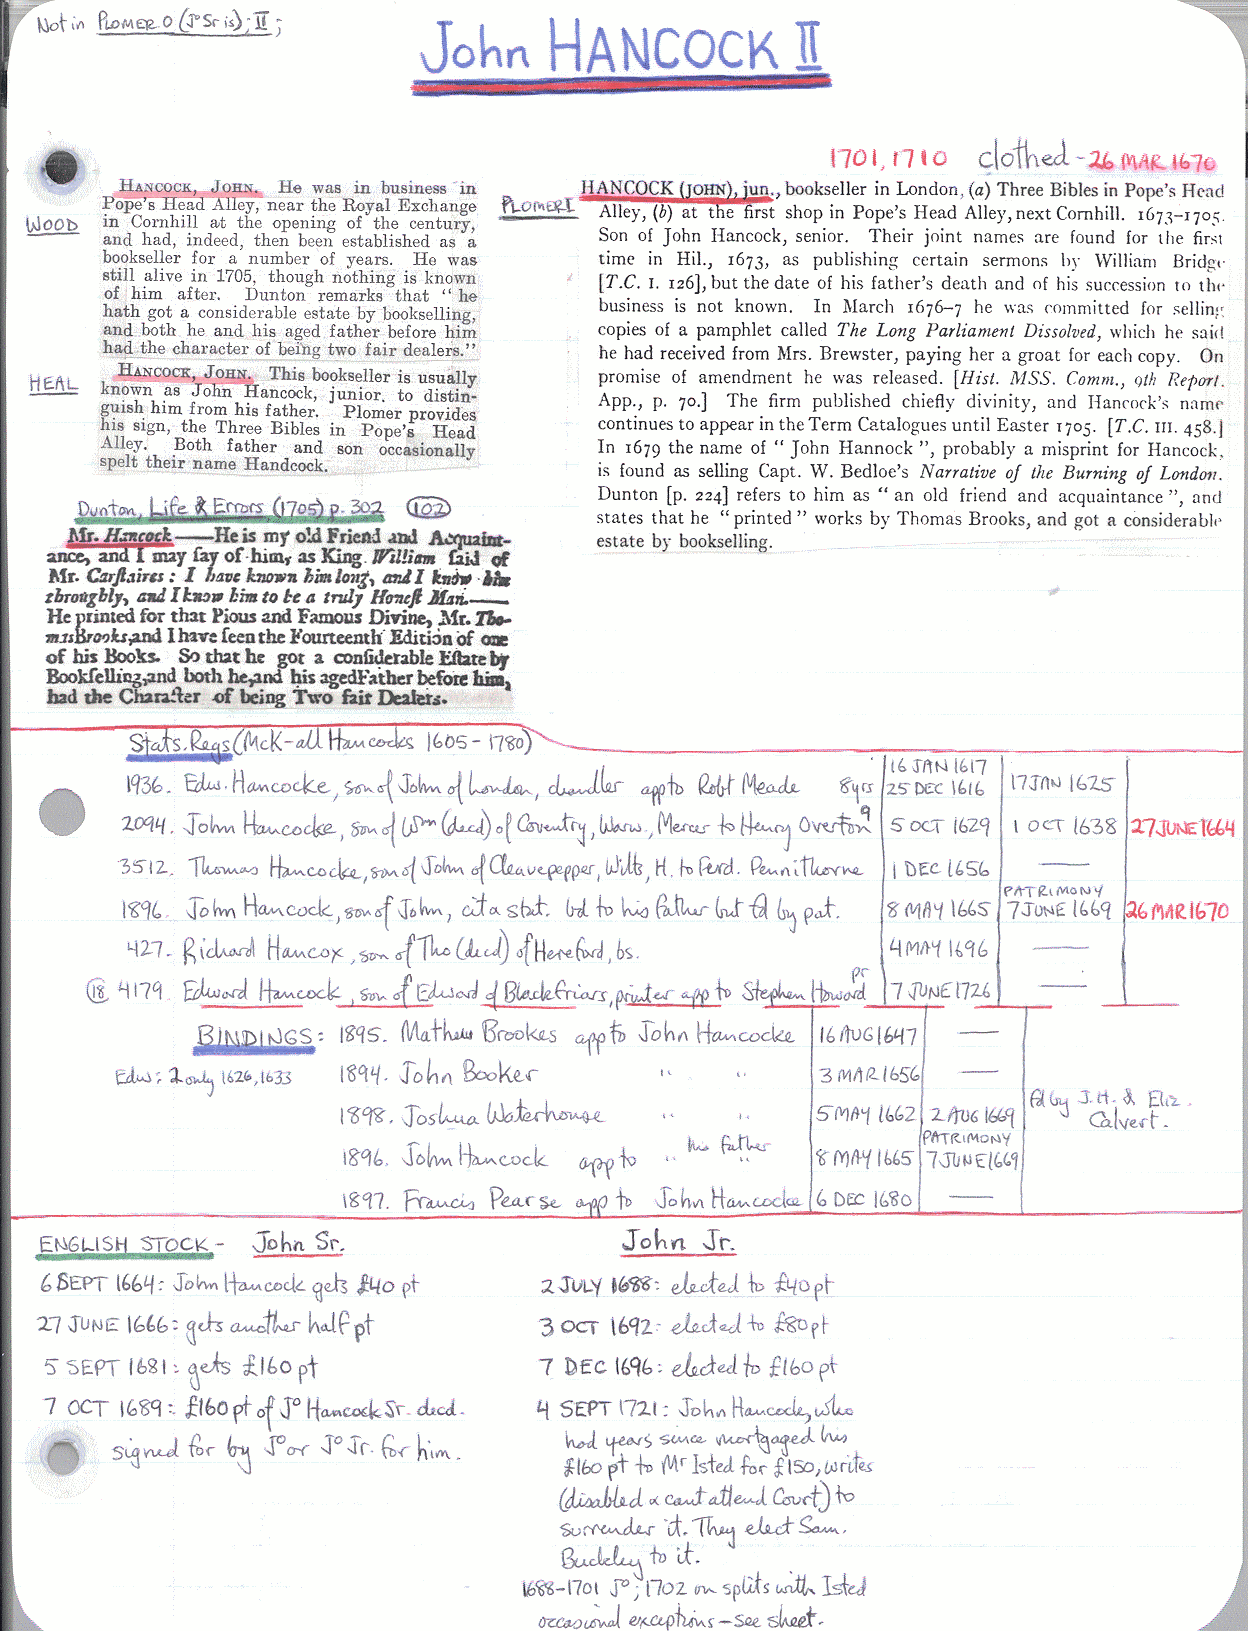 Not in PLOMER O (Jº Sr is); II;
John HANCOCK II
1701, 1710 clothed - 26 MAR 1670
WOOD
HANCOCK, JOHN. He was in business in
Pope's Head Alley, near the Royal Exchange
in Cornhill at the opening of the century,
and had, indeed, then been established as a
bookseller for a number of years. He was
still alive in 1705, though nothing is known
of him after. Dunton remarks that "he
hath got a considerable estate by bookselling,
and both he and his aged father before him
had the character of being two fair dealers."
HEAL
HANCOCK, JOHN. This bookseller is usually
known as John Hancock, junior, to distin-
guish him from his father. Plomer provides
his sign, the Three Bibles in Pope's Head
Alley. Both father and son occasionally
spelt their name Handcock.
PLOMER I
HANCOCK (JOHN), jun., bookseller in London, (a) Three Bibles in Pope's Head
Alley, (b) at the first shop in Pope's Head Alley, next Cornhill. 1673–1705.
Son of John Hancock, senior. Their joint names are found for the first
time in Hil., 1673, as publishing certain sermons by William Bridge
[T.C. I. 126], but the date of his father's death and of his succession to the
business is not known. In March 1676–7 he was committed for selling
copies of a pamphlet called The Long Parliament Dissolved, which he said
he had received from Mrs. Brewster, paying her a groat for each copy. On
promise of amendment he was released. [Hist. MSS. Comm., 9th Report.
App., p. 70.] The firm published chiefly divinity, and Hancock's name
continues to appear in the Term Catalogues until Easter 1705. [T.C. III. 458.]
In 1679 the name of "John Hannock", probably a misprint for Hancock,
is found as selling Capt. W. Bedloe's Narrative of the Burning of London.
Dunton [p. 224] refers to him as "an old friend and acquaintance", and
states that he "printed" works by Thomas Brooks, and got a considerable
estate by bookselling.
Dunton, Life & Errors, (1705) p. 302 (102)
Mr. Hancock——He is my old Friend and Acquaint-
ance, and I may ſay of him, as King William ſaid of
Mr. Carſtaires: I have known him long, and I know him
throughly, and I know him to be a truly Honeſt Man.——
He printed for that Pious and Famous Divine, Mr. Tho-
mas Brooks, and I have ſeen the Fourteenth Edition of one
of his Books. So that he got a conſiderable Eſtate by
Bookſelling, and both he, and his aged Father before him,
had the Character of being Two fair Dealers.
Stats. Regs (McK-all Hancocks 1605-1780)
16 JAN 1617
1936. Edw. Hancocke, son of John of London, chandler app to Robt Meade 8yrs 25 DEC 1616 17 JAN 1625
2094. John Hancocke, son of Wm (decd) of Coventry, Warw., Mercer to Henry Overton 9 5 OCT 1629 1 OCT 1638 27 JUNE 1664
3512. Thomas Hancocke, son of John of Cleavepepper, Wilts, H. to Ferd. Pennithorne 1 DEC 1656 —
PATRIMONY
1896. John Hancock, son of John, cit a stat. bd to his father but fd by pat. 8 MAY 1665 7 JUNE 1669 26 MAR 1670
427. Richard Hancox, son of Tho (decd) of Hereford, bs. 4 MAY 1696 —
(18) 4179. Edward Hancock, son of Edward of Blackfriars, printer app to Stephen Howard pr 7 JUNE 1726 —
BINDINGS: 1895. Mathew Brookes app to John Hancocke 16 AUG 1647 —
Edw: 2 only 1626, 1633
1894. John Booker " " 3 MAR 1656 —
1898. Joshua Waterhouse " " 5 MAY 1662 2 AUG 1669 fd by J.H. & Eliz. Calvert.
PATRIMONY
1896. John Hancock app to " his father " 8 MAY 1665 7 JUNE 1669
1897. Francis Pearse app to John Hancocke 6 DEC 1680 —
ENGLISH STOCK - John Sr.
6 SEPT 1664: John Hancock gets £40 pt
27 JUNE 1666: gets another half pt
5 SEPT 1681: gets £160 pt
7 OCT 1689: £160 pt of Jº Hancock Sr. decd.
signed for by Jº or Jº Jr. for him.
John Jr.
2 JULY 1688: elected to £40 pt
3 OCT 1692: elected to £80 pt
7 DEC 1696: elected to £160 pt
4 SEPT 1721: John Hancock, who
had years since mortgaged his
£160 pt to Mr Isted for £150, writes
(disabled & cant attend Court) to
surrender it. They elect Sam.
Buckley to it.
1688-1701 Jº; 1702 on splits with Isted
occasional exceptions - see sheet.